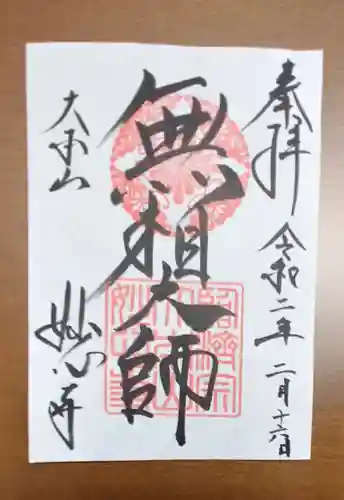 奉拝
令和二年二月十六日
無相大師
大本山
妙心寺